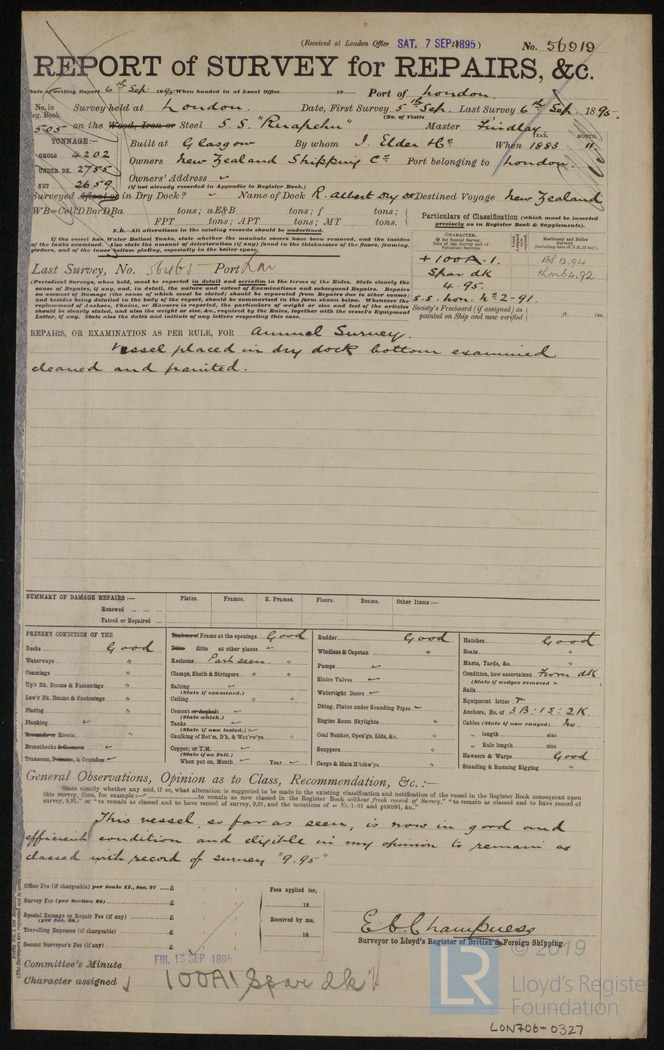 (Received at London Office SAT. 7 SEP. 1895) No. 56919
REPORT of SURVEY for REPAIRS, &c.
Date of writing Report 6th Sep. 1895 When handed in at Local Office 18 Port of London.
No. in Reg. Book Survey held at London. Date, First Survey 5th Sep. Last Survey 6th Sep. 1895.
(No. of Visits
505 on the Wood, Iron or Steel S.S. "Ruapehu" Master Findlay
TONNAGE:— Built at Glasgow By whom J. Elder & Co. When 1883 YEAR. MONTH. 11.
GROSS 4202
UNDER DK. 2755 Owners New Zealand Shipping Co. Port belonging to London.
NET 2659 Owners' Address
(if not already recorded in Appendix to Register Book.)
Surveyed Afloat or in Dry Dock? Name of Dock R. Albert Dry Dk Destined Voyage New Zealand
WB=CellDBorDBa tons; uE&B tons; f tons;
FPT tons; APT tons; MT tons.
N.B.—All alterations in the existing records should be underlined.
If the vessel has Water Ballast Tanks, state whether the manhole covers have been removed, and the insides
of the tanks examined. Also state the amount of deterioration (if any) found in the thicknesses of the floors, framing,
girders, and of the inner bottom plating, especially in the boiler space.
Particulars of Classification (which must be inserted
precisely as in Register Book & Supplements).
CHARACTER.
Machinery and Boiler Surveys
+ 100A.1.
Spar dk
4.95.
S.S. Lon. No. 2-91.
BS 12.94
Society's Freeboard (if assigned) as
painted on Ship and now verified ft. ins.
Last Survey, No. Port
(Periodical Surveys, when held, must be reported in detail and seriatim in the terms of the Rules. State clearly the
cause of Repairs, if any, and, in detail, the nature and extent of Examinations and subsequent Repairs. Repairs
on account of Damage (the cause of which must be stated) should be separated from Repairs due to other causes;
and besides being detailed in the body of the report, should be summarised in the form shown below. Whenever the
replacement of Anchors, Chains, or Hawsers is reported, the particulars of weight or size and test of the articles
should be clearly stated, and also the weight or size, &c., required by the Rules, together with the vessel's Equipment
Letter, if any. State also the dates and initials of any letters respecting this case.
REPAIRS, OR EXAMINATION AS PER RULE, FOR Annual Survey.
Vessel placed in dry dock bottom examined
cleaned and painted.
SUMMARY OF DAMAGE REPAIRS:— Plates. Frames. R. Frames. Floors. Beams. Other Items:—
Renewed
Faired or Repaired
PRESENT CONDITION OF THE
Decks Good
Waterways "
Coamings "
Up'r Dk. Beams & Fastenings "
Low'r Dk. Beams & Fastenings "
Plating "
Planking
Treenails or Rivets "
Breasthooks & Crutches "
Transoms, Pointers, & Crutches
Timbers or Frame at the openings Good
Ditto ditto at other places
Keelsons Part seen. "
Clamps, Shelfs & Stringers "
Salting
(State if examined.)
Ceiling "
Cement or Asphalt
(State which.)
Tanks
(State if now tested.)
Caulking of Bot'm, D'k, & Wat'rw'ys "
Copper, or Y.M.
(State if on Felt.)
When put on, Month Year
Rudder Good
Windlass & Capstan "
Pumps
Sluice Valves
Watertight Doors
Dblng. Plates under Sounding Pipes
Engine Room Skylights "
Coal Bunker, Open'gs, Lids, &c. "
Scuppers "
Cargo & Main H'tchw'ys "
Hatches Good
Boats "
Masts, Yards, &c. "
Condition, how ascertained From dk
(State if wedges removed
Sails
Equipment letter T
Anchors, No. of 3 B: 1 S: 2 K.
Cables (State if now ranged) No.
" length size
" Rule length size
Hawsers & Warps Good
Standing & Running Rigging "
General Observations, Opinion as to Class, Recommendation, &c.:—
State clearly whether any, and if so, what alteration is suggested to be made in the existing classification and notification of the vessel in the Register Book consequent upon
this survey, thus, for example: "to remain as now classed in the Register Book without fresh record of Survey," "to remain as classed and to have record of
survey, 9,91," or "to remain as classed and to have record of survey, 9,91, and the notations of ss No. 1-91 and ptNB91, &c."
This vessel, so far as seen, is now in good and
efficient condition and eligible in my opinion to remain as
classed with record of survey "9.95"
Office Fee (if chargeable) per Scale II., Sec. 27) £
Survey Fee (per Section 28) £
Special Damage or Repair Fee (if any) £
(per Sec. 28.)
Travelling Expenses (if chargeable) £
Second Surveyor's Fee (if any) £
Fees applied for,
18
Received by me,
18
E. C. Champness
Surveyor to Lloyd's Register of British & Foreign Shipping.
Committee's Minute FRI. 13 SEP 1895
Character assigned 100A1 Spar dk
© 2019
LR
Lloyd's Register
Foundation
LON706-0327